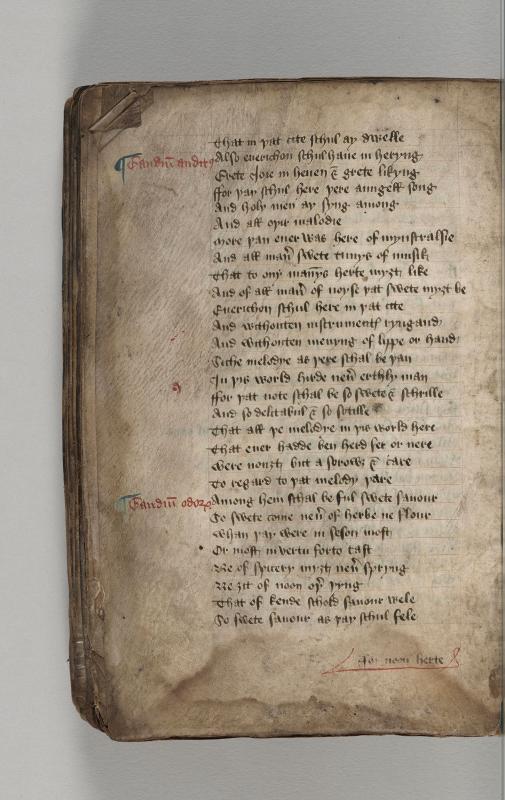 That in þat cite schul ay dwelle
Gaudiū auditꝰ
Also euerichon schul haue in heryng
Grete Joie in heuen & grete likyng
ffor þay schul here þere aungell song
And holy men ay syng among
And all oþir malodie
More þan euer was here of mynstralsie
And all manꝰ swete tunys of musik
That to ony mannys herte myȝt like
And of all manꝰ of noyse þat swete myȝt be
Euerichon schul here in þat cite
And withouten instrumentȝ ryngand
And withouten meuyng of lippe or hand
Siche melodye as þere schal be þan
In þis world hirde neuꝰ erthly man
ffor þat note schal be so swete & schrille
And so delitabul & so sotille
That all þe melodye in þis world here
That euer hadde ben herd fer or nere
Were nouȝt but a sorow & care
To regard to þat melody þare
Gaudiū odorꝰ
Among hem schal be ful swete sauour
So swete come neuꝰ of herbe ne flour
Whan þay were in seson most
Or most in vertu forto tast
Ne of spicery myȝt neuꝰ spryng
Ne ȝit of noon oþꝰ þyng
That of kende schold sauour wele
So swete sauour as þay schul fele
ffor noon herte